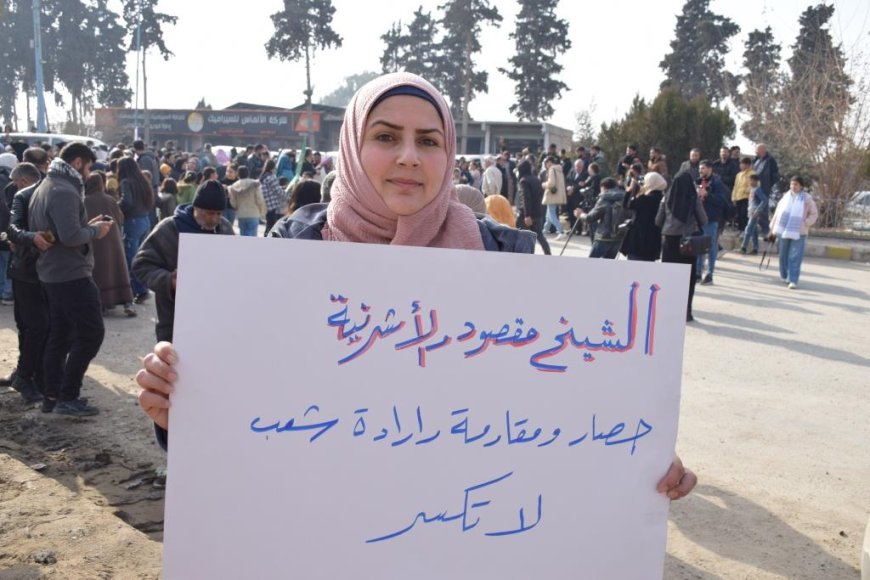 شركة الألماس للسيراميك
الشيخ مقصود والأشرفية
حصار ومقاومة وإرادة شعب
لا تكسر